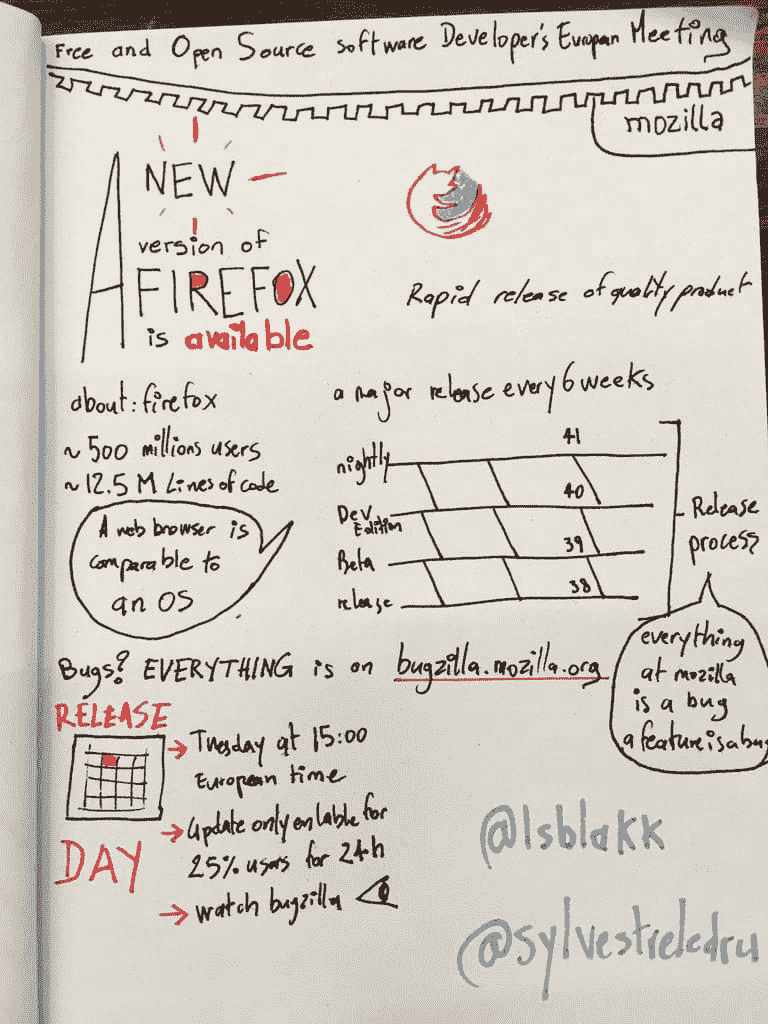 Free and Open Source software Developer's European Meeting
mozilla
A NEW
version of
FIREFOX
is available
Rapid release of quality product
about:firefox
~ 500 millions users
~ 12.5 M Lines of code
A web browser is
comparable to
an OS
a major release every 6 weeks
nightly
41
Dev
Edition
40
Beta
39
release
38
Release
process
everything
at mozilla
is a bug
a feature is a bug
Bugs? EVERYTHING is on bugzilla.mozilla.org
RELEASE
DAY
→ Tuesday at 15:00
European time
→ Update only enlable for
25% users for 24h
→ watch bugzilla
@lsblakk
@sylvestreledru